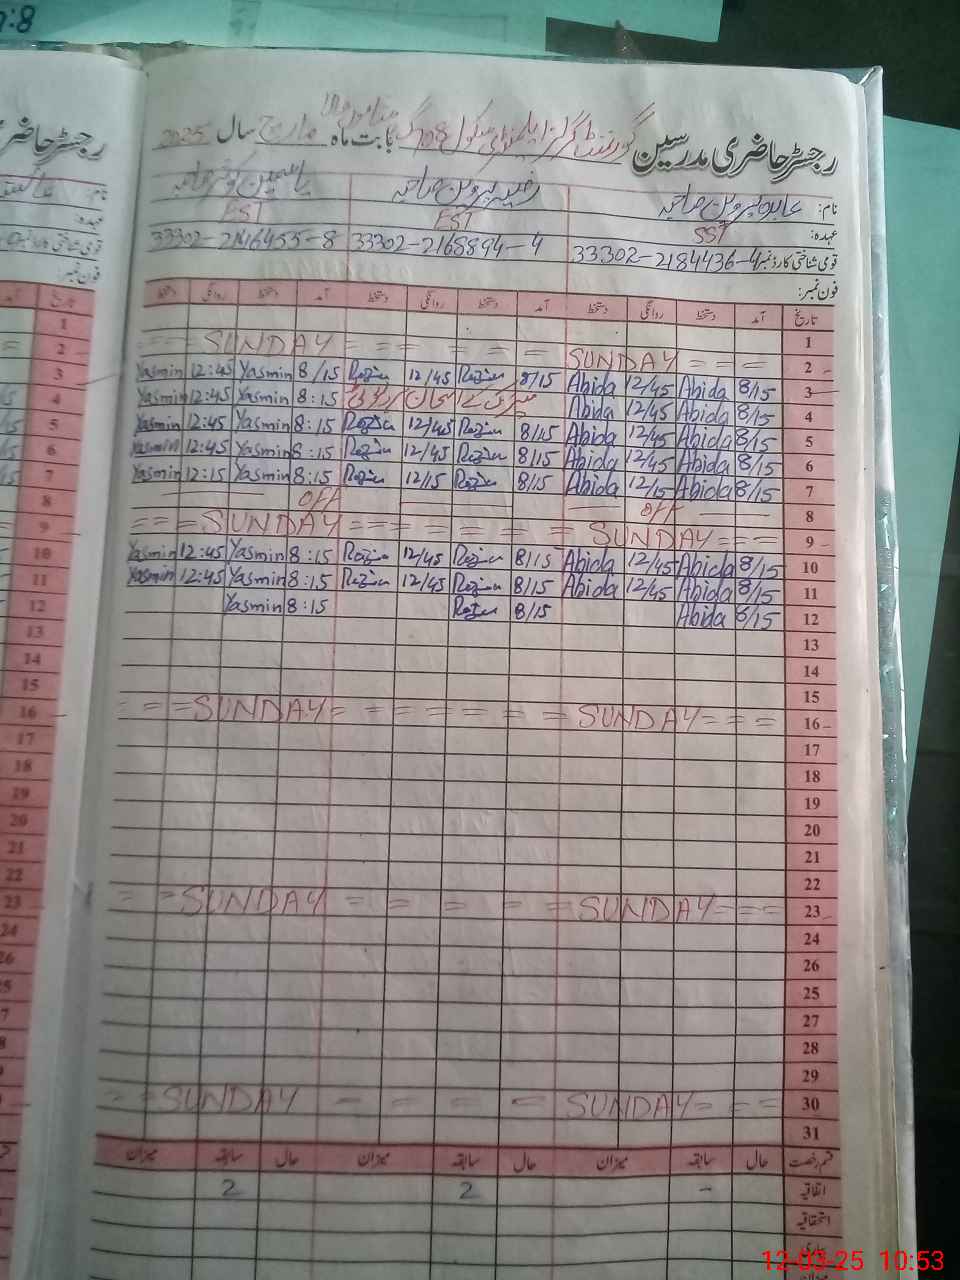 رجسٹر حاضری مدرسین گورنمنٹ گرلز ایلیمنٹری سکول 708 گ ب بابت ماہ مارچ سال 2025
نام: عابدہ پروین صاحبہ رضیہ پروین صاحبہ یاسمین کوثر صاحبہ
عہدہ: SST EST EST
قومی شناختی کارڈ نمبر 33302-2184436-4 33302-2168894-4 33302-2116455-8
فون نمبر:
تاریخ آمد دستخط روانگی دستخط آمد دستخط روانگی دستخط آمد دستخط روانگی دستخط
1
= = = SUNDAY = = = = = = SUNDAY = = = 2
Yasmin 12:45 Yasmin 8/15 Razia 12/45 Razia 8/15 Abida 12/45 Abida 8/15 3
Yasmin 12:45 Yasmin 8:15 Abida 12/45 Abida 8/15 4
Yasmin 12:45 Yasmin 8:15 Razia 12/45 Razia 8/15 Abida 12/45 Abida 8/15 5
Yasmin 12:45 Yasmin 8:15 Razia 12/45 Razia 8/15 Abida 12/45 Abida 8/15 6
Yasmin 12:15 Yasmin 8:15 Razia 12/15 Razia 8/15 Abida 12/15 Abida 8/15 7
OFF OFF 8
= = = SUNDAY = = = = = = = SUNDAY = = = 9
Yasmin 12:45 Yasmin 8:15 Razia 12/45 Razia 8/15 Abida 12/45 Abida 8/15 10
Yasmin 12:45 Yasmin 8:15 Razia 12/45 Razia 8/15 Abida 12/45 Abida 8/15 11
Yasmin 8:15 Razia 8/15 Abida 8/15 12
13
14
15
= = = SUNDAY = = = = = = SUNDAY = = = 16
17
18
19
20
21
22
= = SUNDAY = = = = = SUNDAY = = = 23
24
26
25
27
28
29
= = SUNDAY = = = = SUNDAY = = = 30
31
قسم رخصت حال سابقہ میزان حال سابقہ میزان حال سابقہ میزان
اتفاقیہ - 2 2
استحقاقیہ
بیماری
12-03-25 10:53